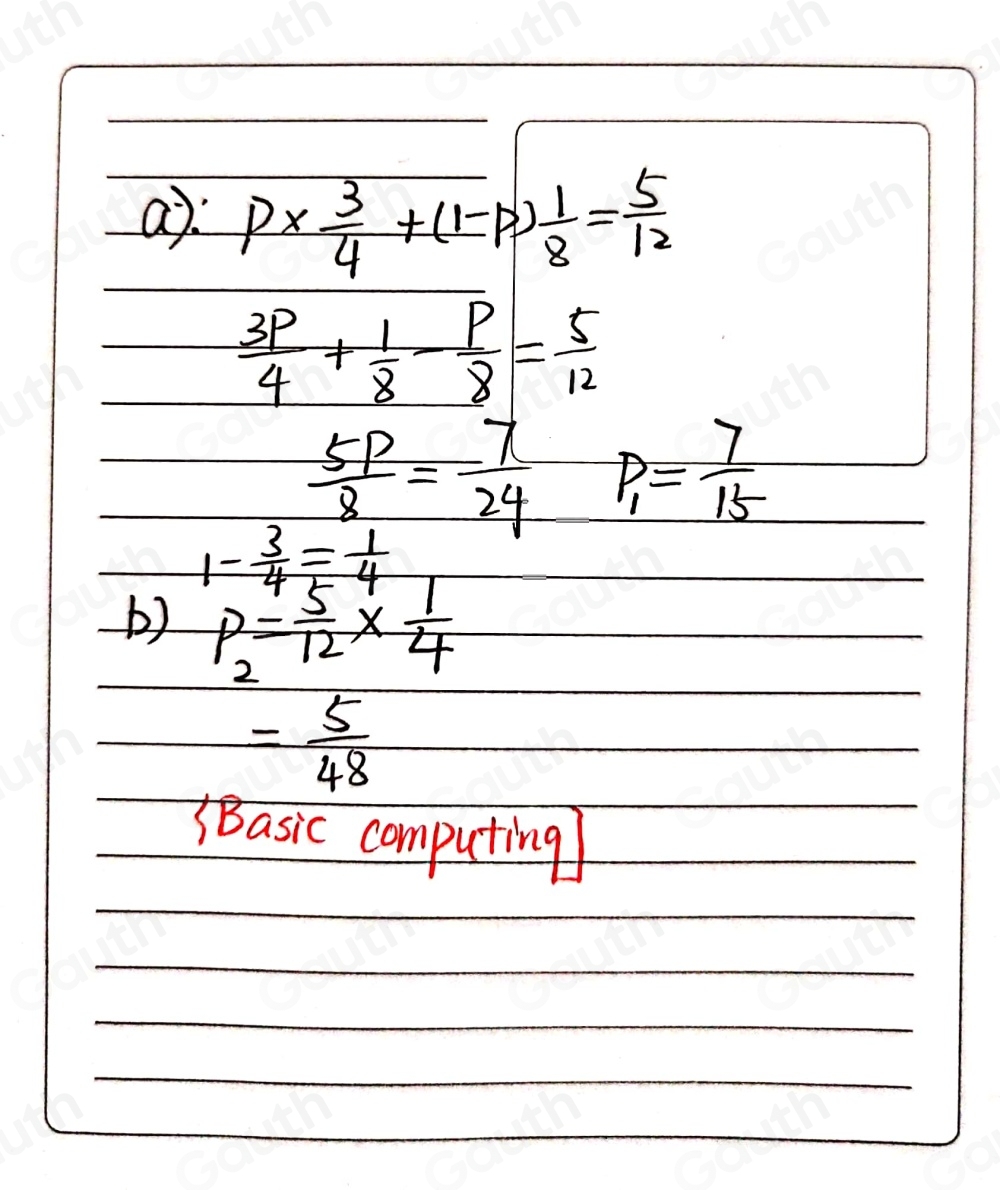 a): P × 3/4 + (1-P) 1/8 = 5/12
3P/4 + 1/8 - P/8 = 5/12
5P/8 = 7/24 P₁ = 7/15
1 - 3/4 = 1/4
b) P₂ = 5/12 × 1/4
= 5/48
{Basic computing]
Gauth